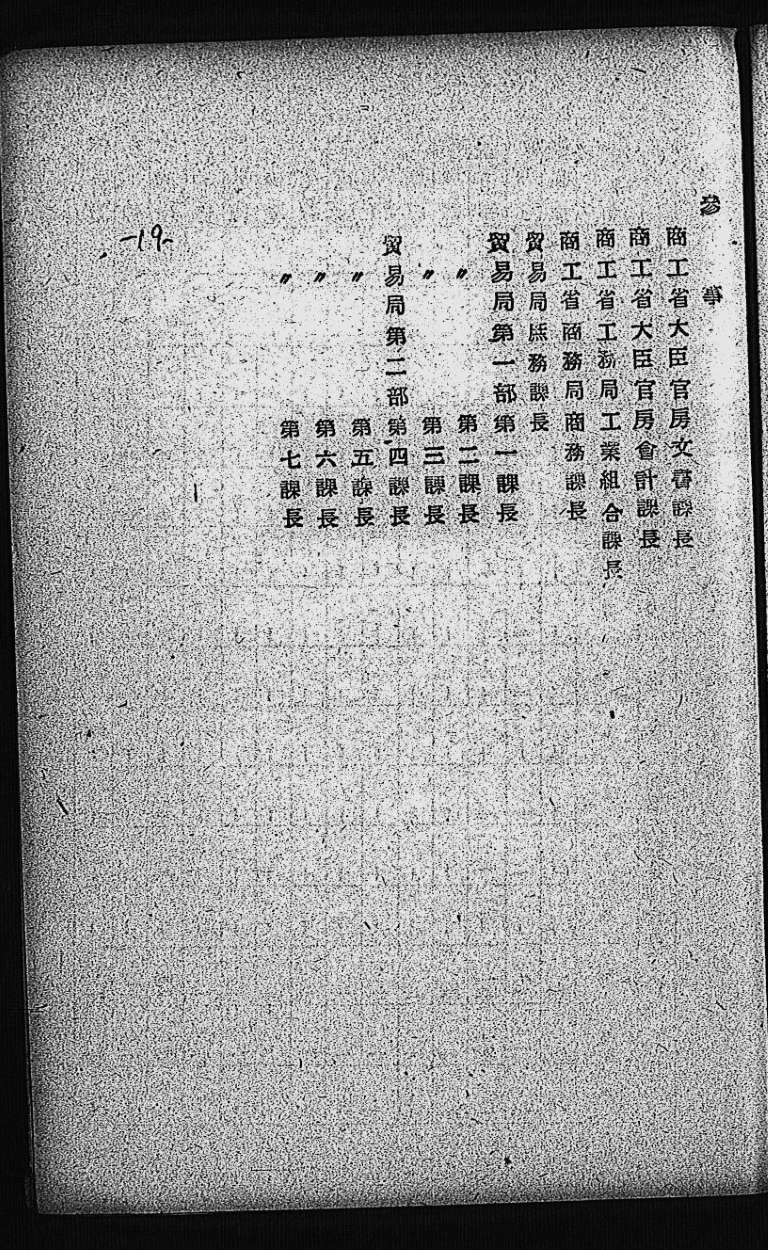 參事
商工省大臣官房文書課長
商工省大臣官房會計課長
商工省工務局工業組合課長
商工省商務局商務課長
貿易局庶務課長
貿易局第一部第一課長
〃第二課長
〃第三課長
貿易局第二部第四課長
〃第五課長
〃第六課長
〃第七課長
-19-